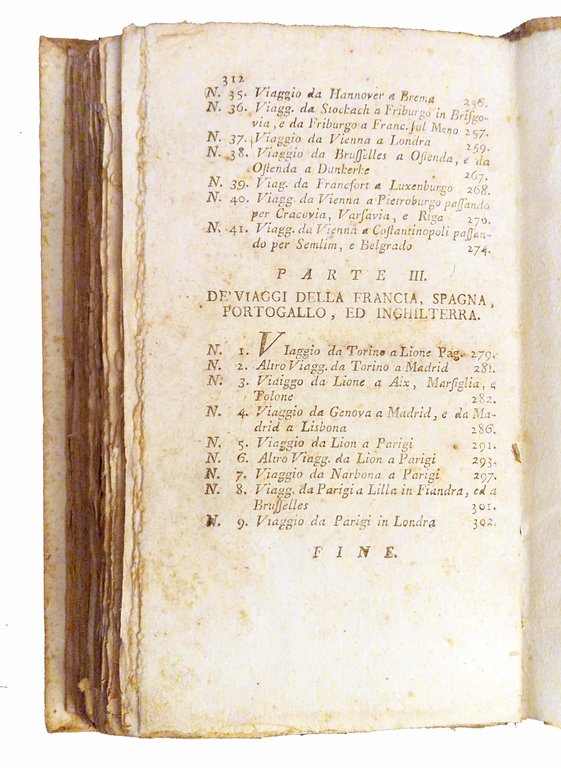 312
N. 35. Viaggio da Hannover a Brema 256.
N. 36. Viagg. da Stockach a Friburgo in Brisgo-
via, e da Friburgo a Franc. sul Meno 257.
N. 37. Viaggio da Vienna a Londra 259.
N. 38. Viaggio da Brusselles a Ostenda, e da
Ostenda a Dunkerke 267.
N. 39. Viag. da Francfort a Luxenburgo 268.
N. 40. Viagg. da Vienna a Pietroburgo passando
per Cracovia, Varsavia, e Riga 270.
N. 41. Viagg. da Vienna a Costantinopoli passan-
do per Semlim, e Belgrado 274.
PARTE III.
DE'VIAGGI DELLA FRANCIA, SPAGNA,
PORTOGALLO, ED INGHILTERRA.
N. 1. VIaggio da Torino a Lione Pag. 279.
N. 2. Altro Viagg. da Torino a Madrid 281.
N. 3. Viaiggo da Lione a Aix, Marsiglia, e
Tolone 282.
N. 4. Viaggio da Genova a Madrid, e da Ma-
drid a Lisbona 286.
N. 5. Viaggio da Lion a Parigi 291.
N. 6. Altro Viagg. da Lion a Parigi 293.
N. 7. Viaggio da Narbona a Parigi 297.
N. 8. Viagg. da Parigi a Lilla in Fiandra, ed a
Brusselles 301.
N. 9. Viaggio da Parigi in Londra 302.
FINE.